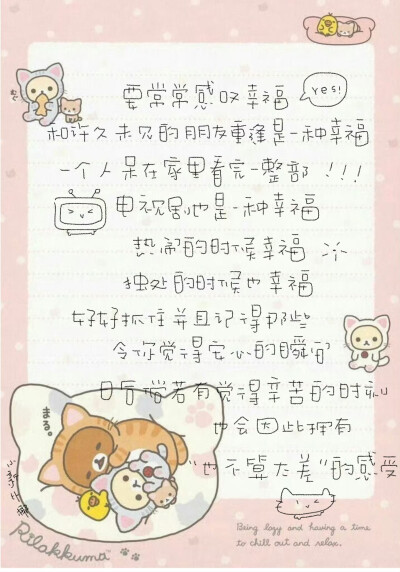 要常常感叹幸福
yes!
和许久未见的朋友重逢是一种幸福
一个人呆在家里看完一整部!!!
电视剧也是一种幸福
热闹的时候幸福
独处的时候也幸福
好好抓住并且记得那些
令你觉得安心的瞬间
日后偌若有觉得辛苦的时刻
也会因此拥有
"也不算太差"的感受
まる。
Rilakkuma™
Being lazy and having a time
to chill out and relax.